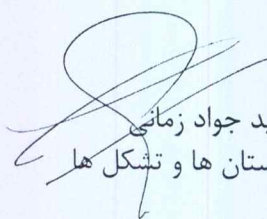 ید جواد زمانی
ستان ها و تشکل ها